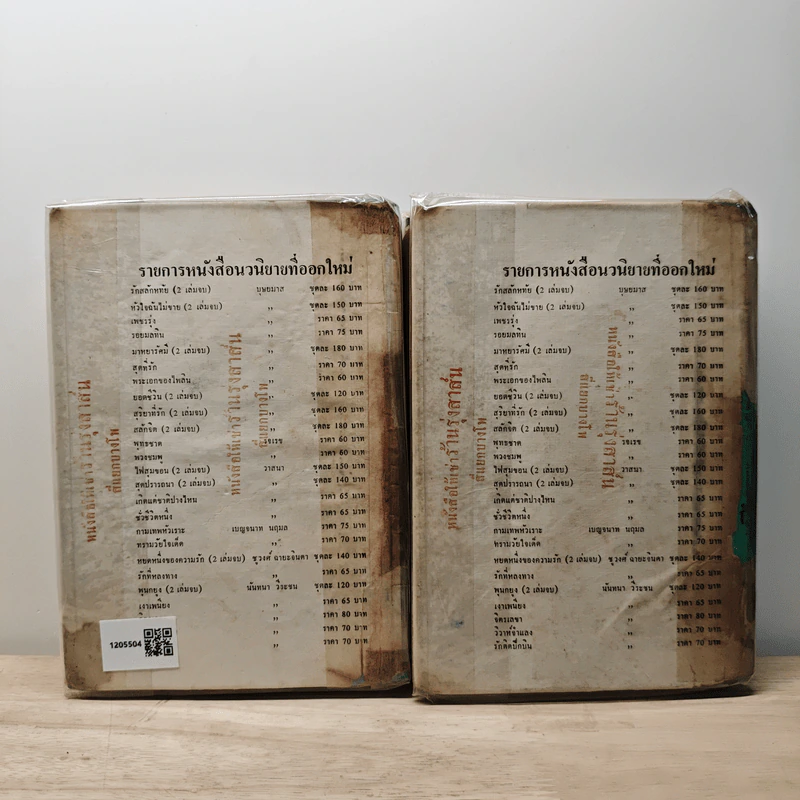 รายการหนังสือนวนิยายที่ออกใหม่
รักสลักหทัย (2 เล่มจบ) บุษยมาส ชุดละ 160 บาท
หัวใจฉันไม่ขาย (2 เล่มจบ) ,, ชุดละ 150 บาท
เพชรรุ้ง ,, ราคา 65 บาท
รอยมลทิน ,, ราคา 75 บาท
มาทยารัศมี (2 เล่มจบ) ,, ชุดละ 180 บาท
สุดที่รัก ราคา 70 บาท
พระเอกของไพลิน ราคา 60 บาท
ยอดชีวิน (2 เล่มจบ) ชุดละ 120 บาท
สุริยาที่รัก (2 เล่มจบ) ชุดละ 160 บาท
สลักจิต (2 เล่มจบ) ชุดละ 180 บาท
พุทธชาด ราคา 60 บาท
พวงชมพู ราคา 60 บาท
ไฟสุมขอน (2 เล่มจบ) วาสนา ชุดละ 150 บาท
สุดปรารถนา (2 เล่มจบ) ,, ชุดละ 140 บาท
เกิดแต่ชาติปางไหน ,, ราคา 65 บาท
ชั่วชีวิตหนึ่ง ,, ราคา 65 บาท
กามเทพหัวเราะ เบญจนาท นฤมล ราคา 75 บาท
ทรามวัยใจเด็ด ,, ราคา 70 บาท
หยดหนึ่งของความรัก (2 เล่มจบ) ชูวงศ์ ฉายะจินดา ชุดละ 140 บาท
รักที่หลงทาง ,, ราคา 65 บาท
พูนกยุง (2 เล่มจบ) นันทนา วีระชน ชุดละ 120 บาท
เงาเพนียง ,, ราคา 65 บาท
,, ราคา 80 บาท
,, ราคา 70 บาท
,, ราคา 70 บาท
หนังสือให้เช่าร้านรุ่งสาส์น
สี่แยกบางโพ
หนังสือให้เช่าร้านรุ่งสาส์น
สี่แยกบางโพ
1205504
รายการหนังสือนวนิยายที่ออกใหม่
รักสลักหทัย (2 เล่มจบ) บุษยมาส ชุดละ 160 บาท
หัวใจฉันไม่ขาย (2 เล่มจบ) ,, ชุดละ 150 บาท
เพชรรุ้ง ,, ราคา 65 บาท
รอยมลทิน ,, ราคา 75 บาท
มาทยารัศมี (2 เล่มจบ) ชุดละ 180 บาท
สุดที่รัก ราคา 70 บาท
พระเอกของไพลิน ราคา 60 บาท
ยอดชีวิน (2 เล่มจบ) ชุดละ 120 บาท
สุริยาที่รัก (2 เล่มจบ) ชุดละ 160 บาท
สลักจิต (2 เล่มจบ) ชุดละ 180 บาท
พุทธชาด ราคา 60 บาท
พวงชมพู ราคา 60 บาท
ไฟสุมขอน (2 เล่มจบ) วาสนา ชุดละ 150 บาท
สุดปรารถนา (2 เล่มจบ) ,, ชุดละ 140 บาท
เกิดแต่ชาติปางไหน ,, ราคา 65 บาท
ชั่วชีวิตหนึ่ง ,, ราคา 65 บาท
กามเทพหัวเราะ เบญจนาท นฤมล ราคา 75 บาท
ทรามวัยใจเด็ด ,, ราคา 70 บาท
หยดหนึ่งของความรัก (2 เล่มจบ) ชูวงศ์ ฉายะจินดา ชุดละ 140 บาท
รักที่หลงทาง ,, ราคา 65 บาท
พูนกยุง (2 เล่มจบ) นันทนา วีระชน ชุดละ 120 บาท
เงาเพนียง ,, ราคา 65 บาท
จิตรเลขา ,, ราคา 80 บาท
วิวาห์จำแลง ,, ราคา 70 บาท
รักติดปีกบิน ,, ราคา 70 บาท
หนังสือให้เช่าร้านรุ่งสาส์น
สี่แยกบางโพ
หนังสือให้เช่าร้านรุ่งสาส์น
สี่แยกบางโพ